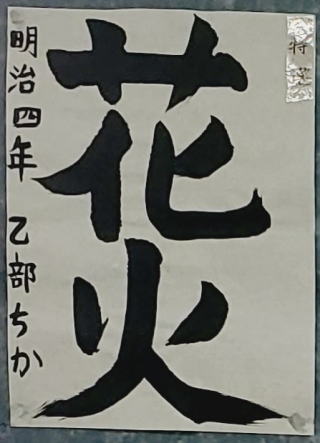 特選
花火
明治四年 乙部ちか